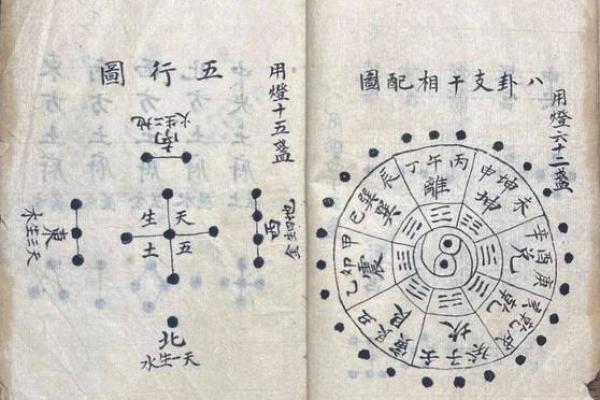 八卦支干相配圖
用燈六十二盞
丙午丁
離
未坤申
坤
庚酉辛
兌
戌乾
乾
子癸
坎
丑艮寅
艮
甲卯乙
震
辰巽巳
巽
用燈十五盞
五行圖
南
地二生火
天五生土
東
天三生木
西
地四生金
北
天一生水